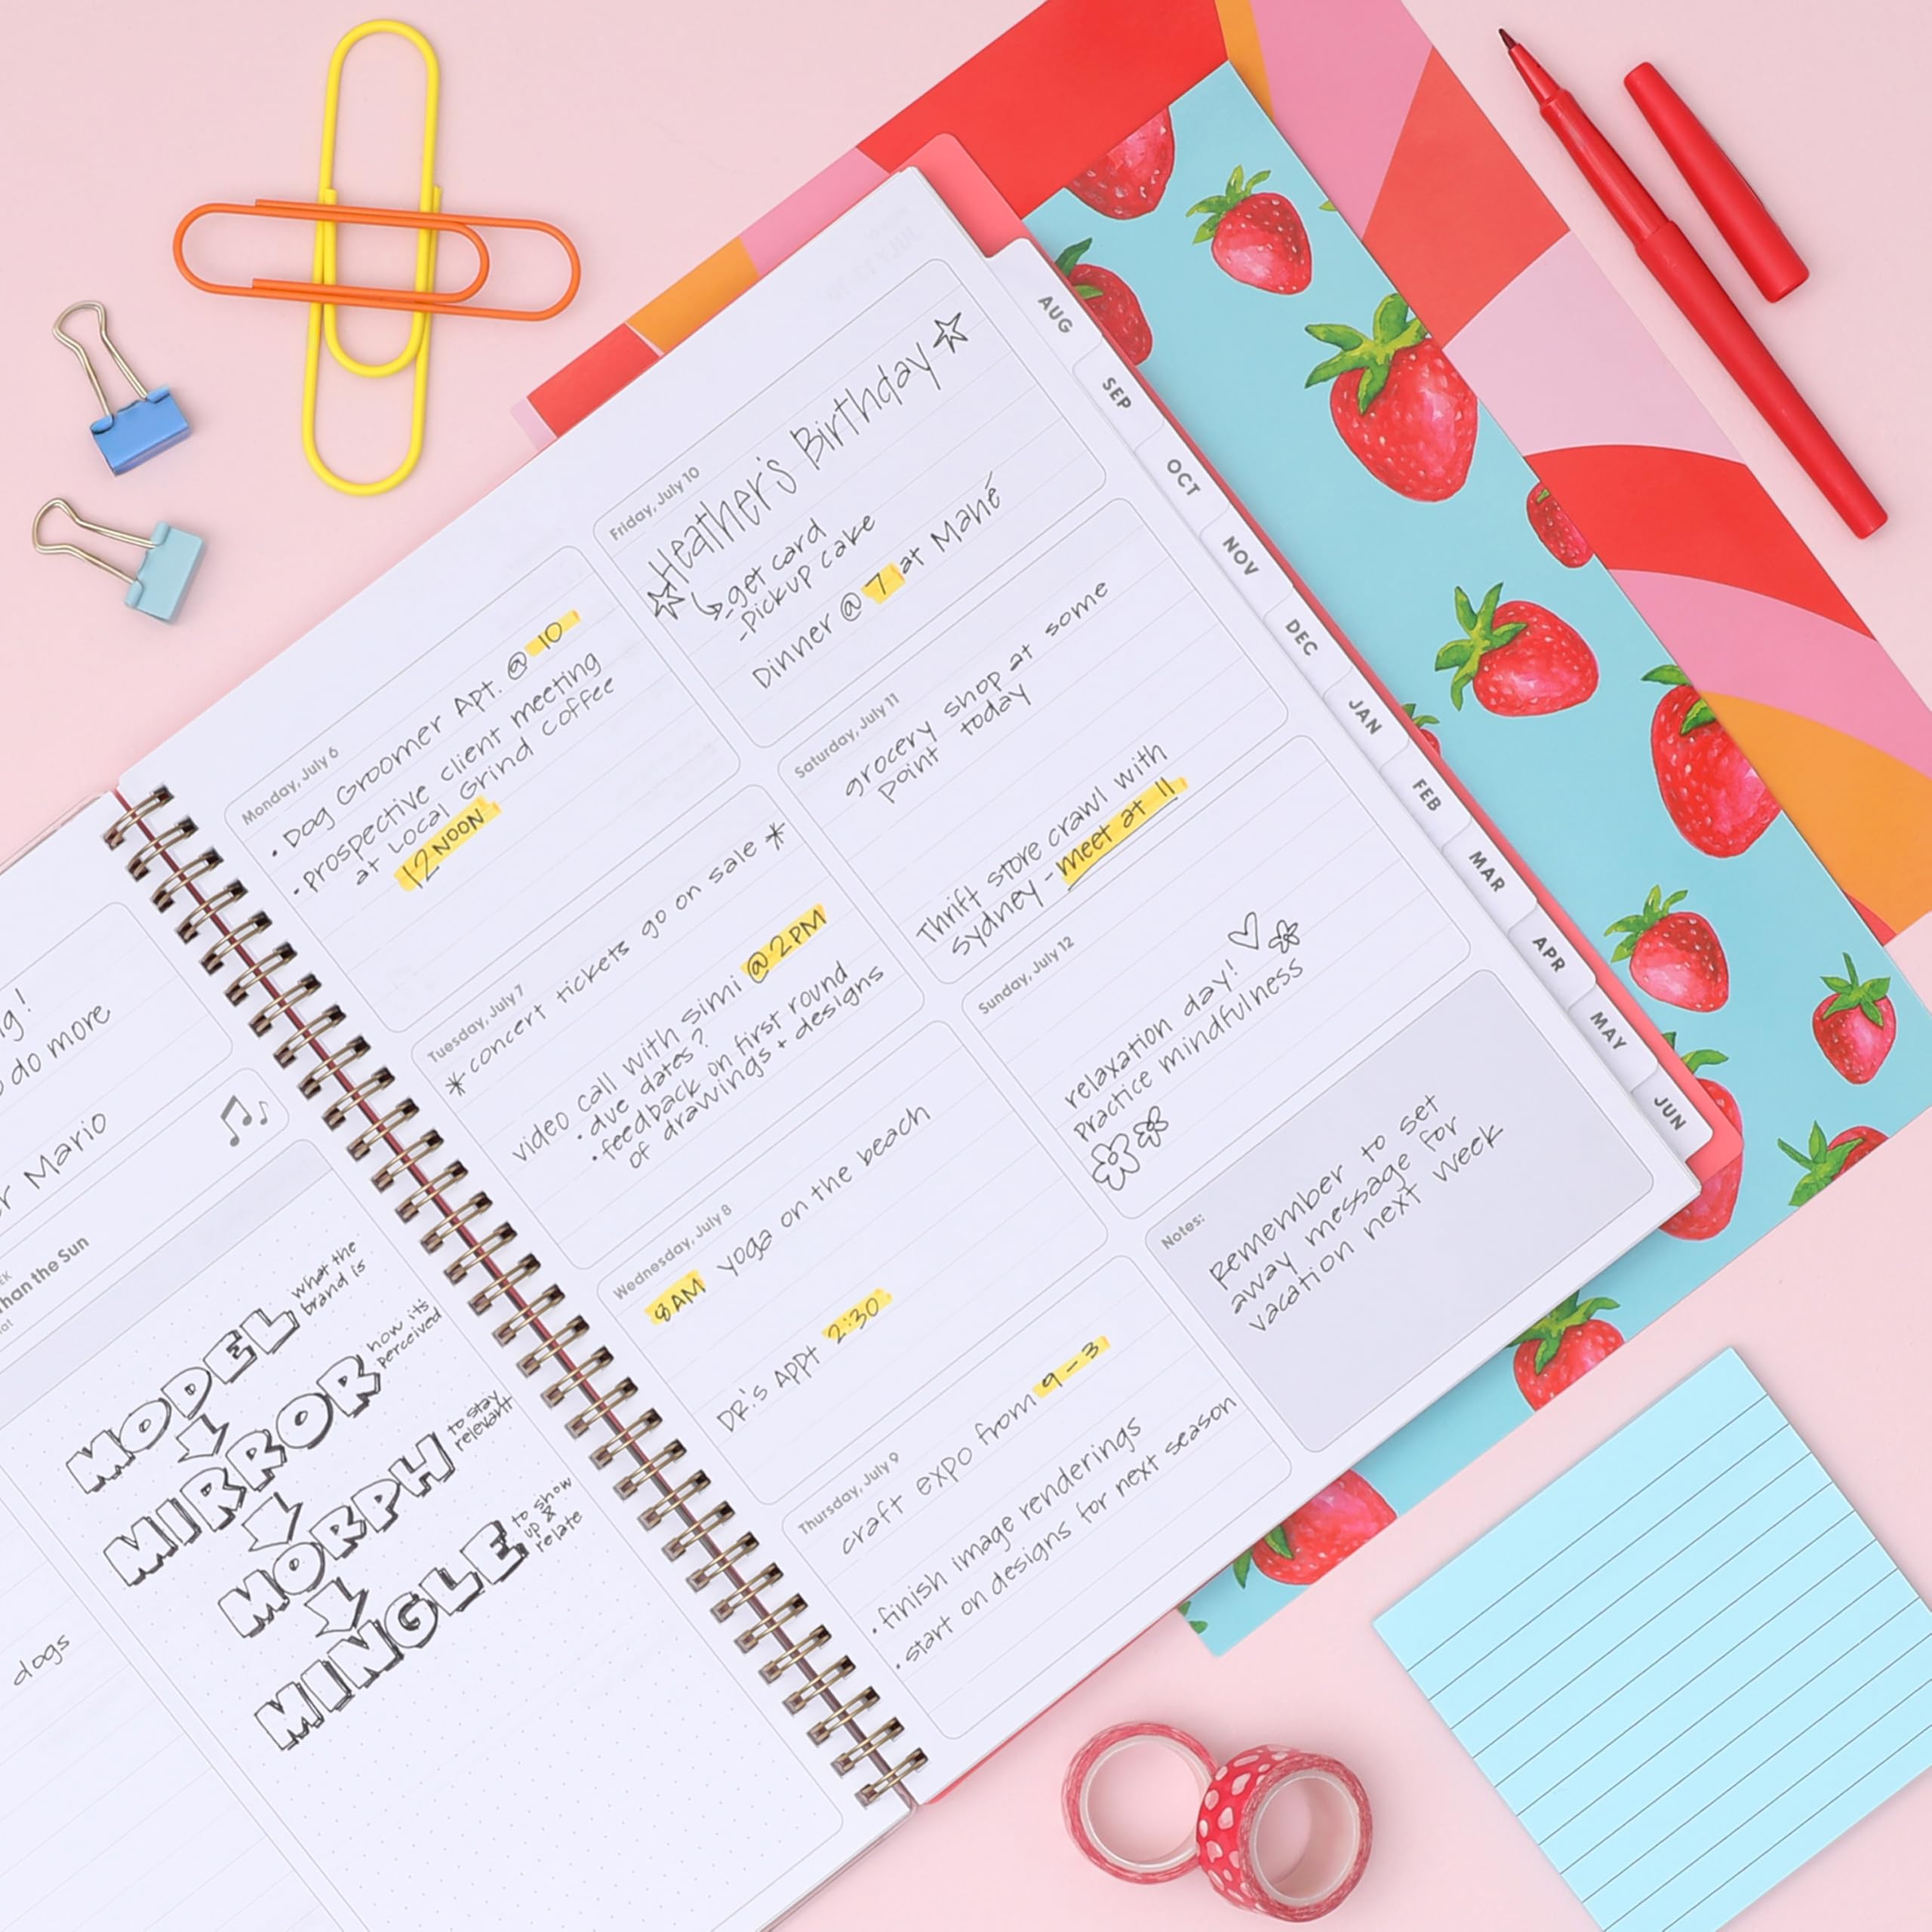 g!
do more
r Mario
EK
han the Sun
dogs
MODEL
what the
brand is
MIRROR
how its
perceived
MORPH
to stay
relevant
MINGLE
to show
up &
relate
Monday, July 6
• Dog Groomer Apt. @ 10
• prospective client meeting
at Local Grind Coffee
12 NOON
Tuesday, July 7
*concert tickets go on sale*
video call with Simi @ 2PM
• due dates?
• feedback on first round
of drawings + designs
Wednesday, July 8
8AM yoga on the beach
DR.'s APPt 2:30
Thursday, July 9
craft expo from 9-3
• finish image renderings
• start on designs for next season
Friday, July 10
☆Heather's Birthday☆
↳-get card
-Pickup cake
Dinner @ 7 at Mané
Saturday, July 11
grocery shop at some
point today
Thrift store crawl with
Sydney - meet at 11
Sunday, July 12
relaxation day! ♡
Practice mindfulness
Notes:
Remember to set
away message for
vacation next week
AUG
SEP
OCT
NOV
DEC
JAN
FEB
MAR
APR
MAY
JUN